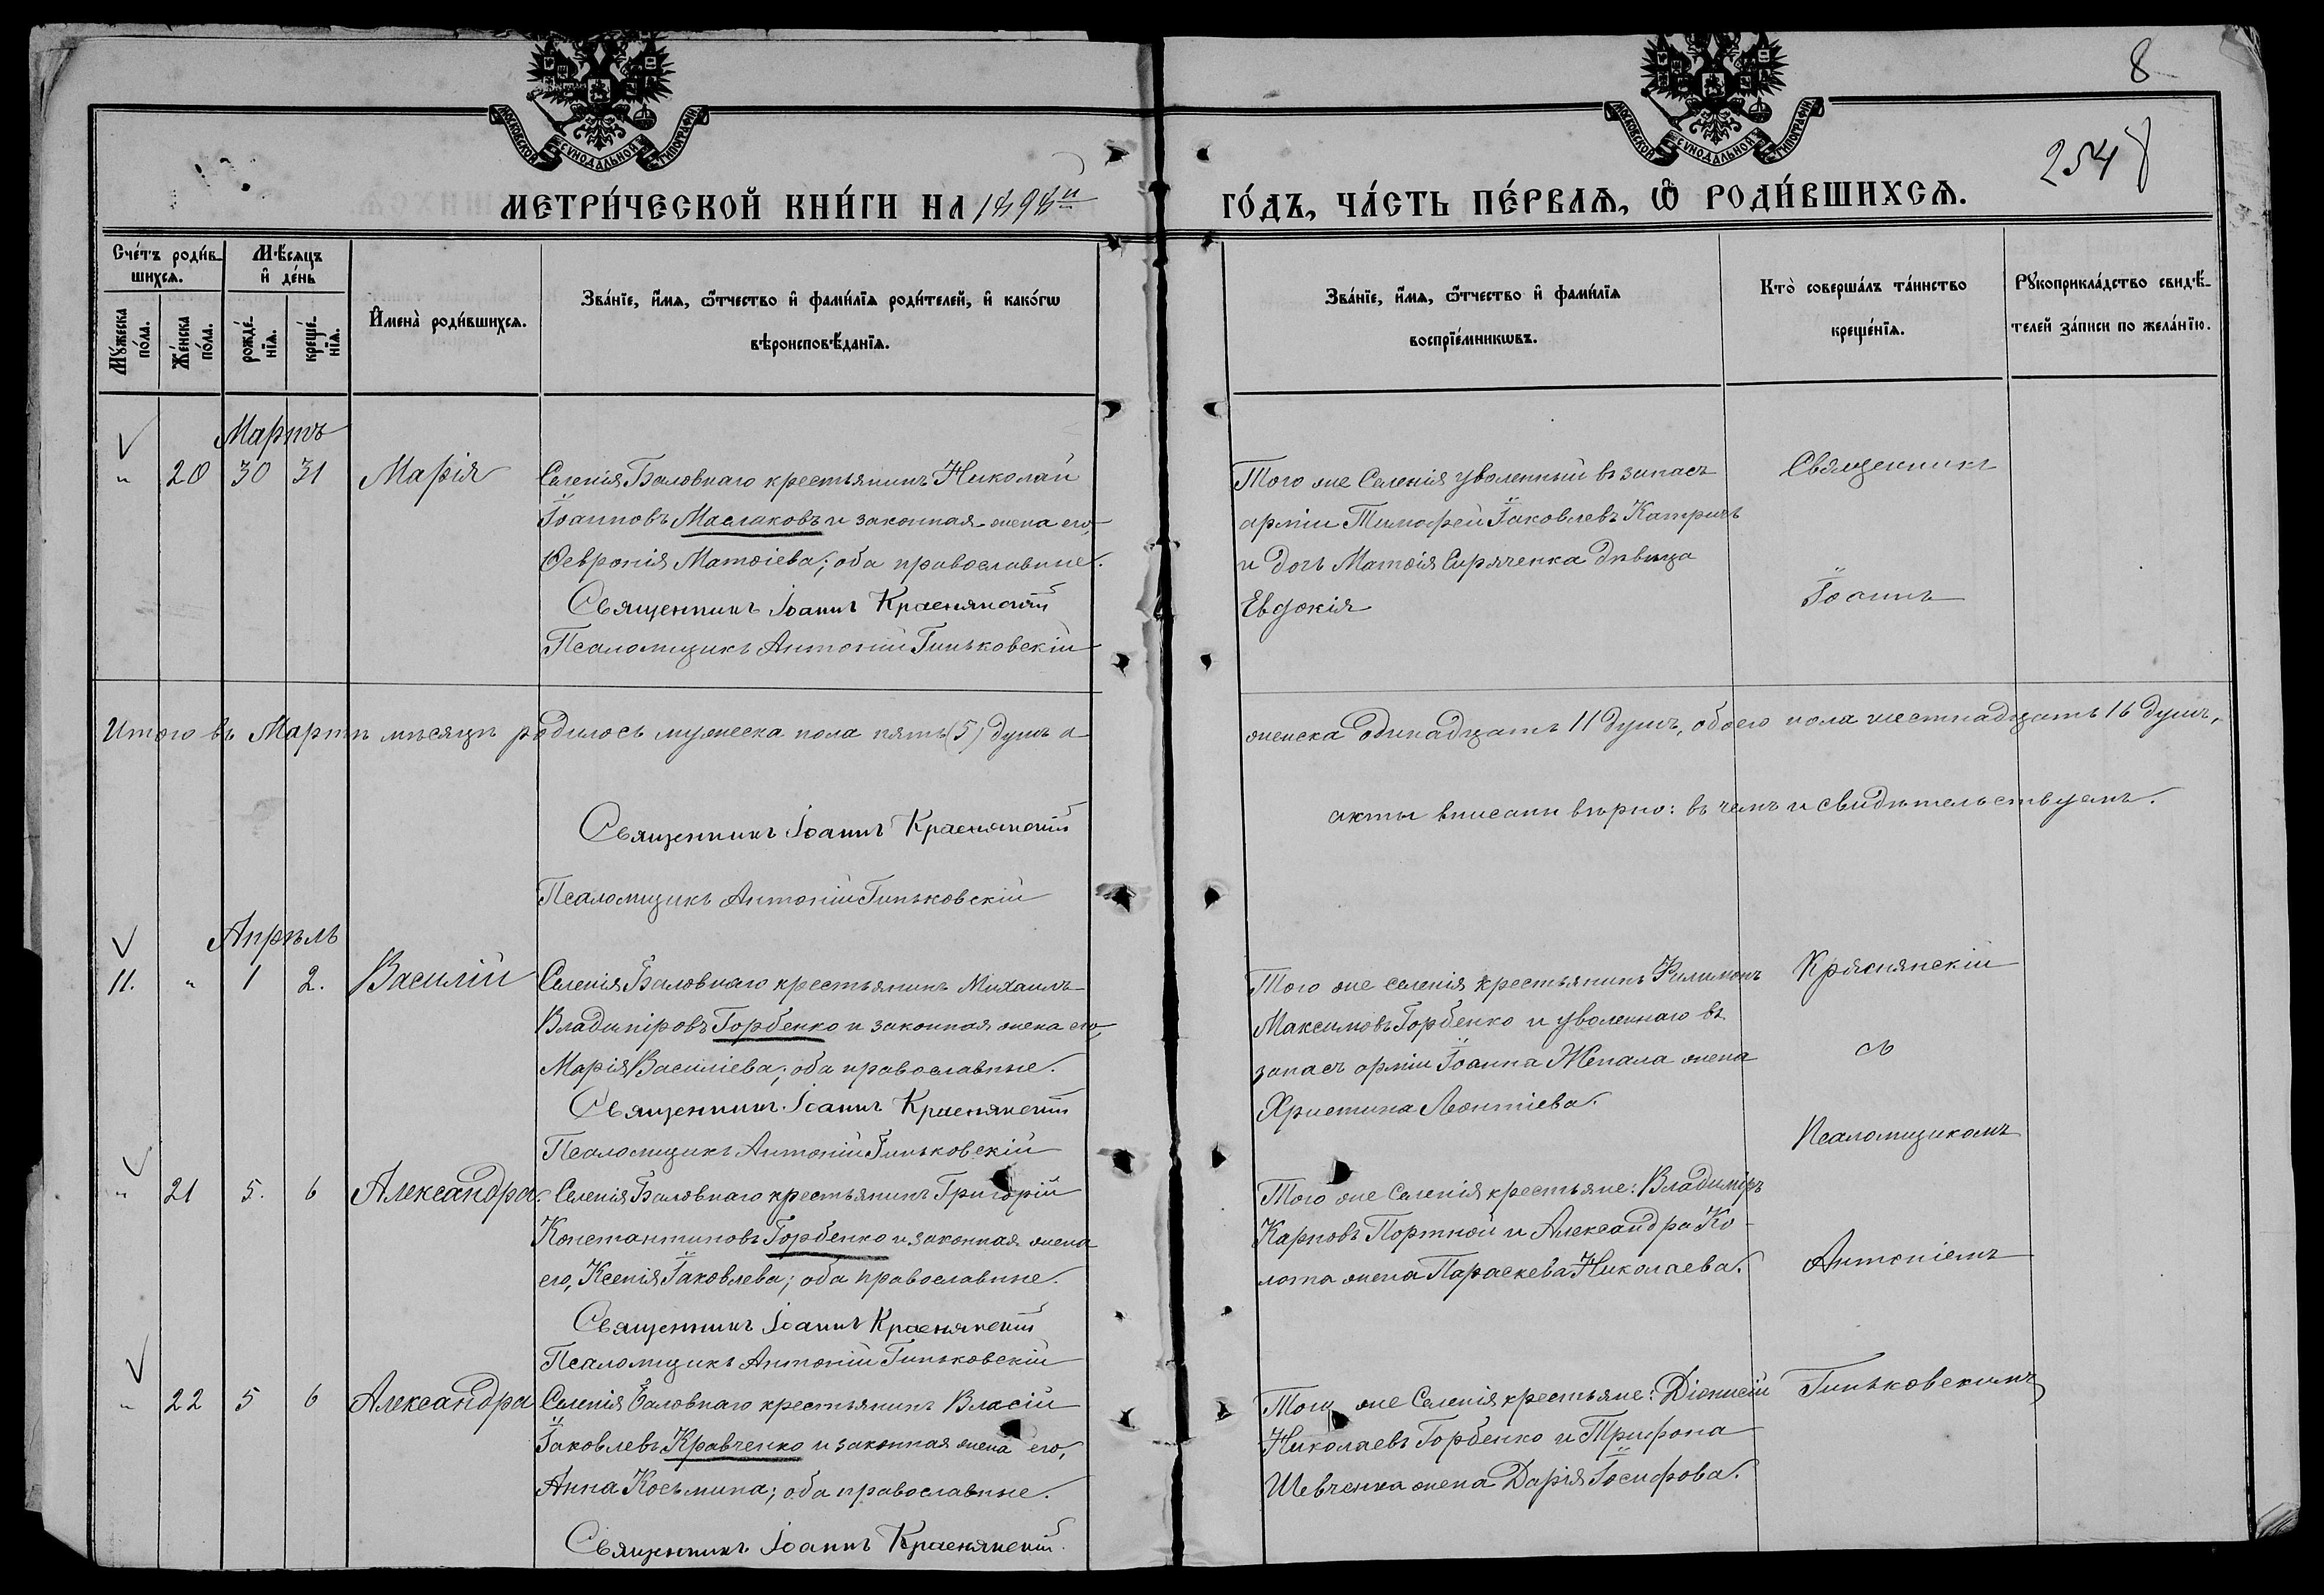 8
254
МОСКОВСКОЙ СѴНОДАЛЬНОЙ ТИПОГРАФІИ
МОСКОВСКОЙ СѴНОДАЛЬНОЙ ТИПОГРАФІИ
МЕТРИ́ЧЕСКОЙ КНИ́ГИ НА 1898й
ГО́ДЪ, ЧА́СТЬ ПЕ́РВАѦ, Ѡ҆ РОДИ́ВШИХСѦ.
Сче́тъ роди́в-
шихсѧ.
Мѣ́сѧцъ
и҆ де́нь
Мꙋ́жеска по́ла.
Же́нска по́ла.
рожде́-нїѧ.
креще́-нїѧ.
И҆мена̀ роди́вшихсѧ.
Зва́нїе, и҆́мѧ, ѻ҆́тчество и҆ фами́лїѧ роди́телей, и҆ како́гѡ
вѣроисповѣ́данїѧ.
Зва́нїе, и҆́мѧ, ѻ҆́тчество и҆ фами́лїѧ
воспрїе́мникѡвъ.
Кто̀ соверша́лъ та́инство
креще́нїѧ.
Рꙋкоприкла́дство свидѣ́-
телей за́писи по жела́нїю.
Мартъ
" 20 30 31 Марія
Селенія Баловнаго крестьянинъ Николай
Іоанновъ Маслаковъ и законная жена его,
Ѳевронія Матѳіева; оба православные.
Священникъ Іоаннъ Краснянскій
Псаломщикъ Антоній Гиньковскій
Того же Селенія уволенный въ запасъ
арміи Тимофей Іаковлевъ Катричъ
и дочь Матѳія Сиряченка дѣвица
Евдокія
Священникъ
Іоаннъ
Итого въ Мартѣ мѣсяцѣ родилось мужеска пола пять (5) душъ а
женска одинадцать 11 душъ, обоего пола шестнадцать 16 душъ,
акты вписаны вѣрно: въ чемъ и свидѣтельствуемъ.
Священникъ Іоаннъ Краснянскій
Псаломщикъ Антоній Гиньковскій
Апрѣль
11. " 1 2. Василій
Селенія Баловнаго крестьянинъ Михаилъ
Владиміровъ Горбенко и законная жена его,
Марія Василіева; оба православные.
Священникъ Іоаннъ Краснянскій
Псаломщикъ Антоній Гиньковскій
Того же селенія крестьянинъ Филимонъ
Максимовъ Горбенко и уволеннаго въ
запасъ арміи Іоанна Жепала жена
Христина Леонтіева.
Краснянскій
съ
Псаломщикомъ
" 21 5. 6 Александра.
Селенія Баловнаго крестьянинъ Григорій
Константиновъ Горбенко и законная жена
его, Ксенія Іаковлева; оба православные.
Священникъ Іоаннъ Краснянскій
Псаломщикъ Антоній Гиньковскій
Того же Селенія крестьяне: Владиміръ
Карповъ Портной и Александра Ко-
лота жена Параскева Николаева.
Антоніемъ
" 22 5 6 Александра
Селенія Баловнаго крестьянинъ Власій
Іаковлевъ Кравченко и законная жена его,
Анна Косьмина; оба православные.
Священникъ Іоаннъ Краснянскій.
Того же Селенія крестьяне: Діонисій
Николаевъ Горбенко и Трифона
Шевченка жена Дарія Іосифова.
Гиньковскимъ